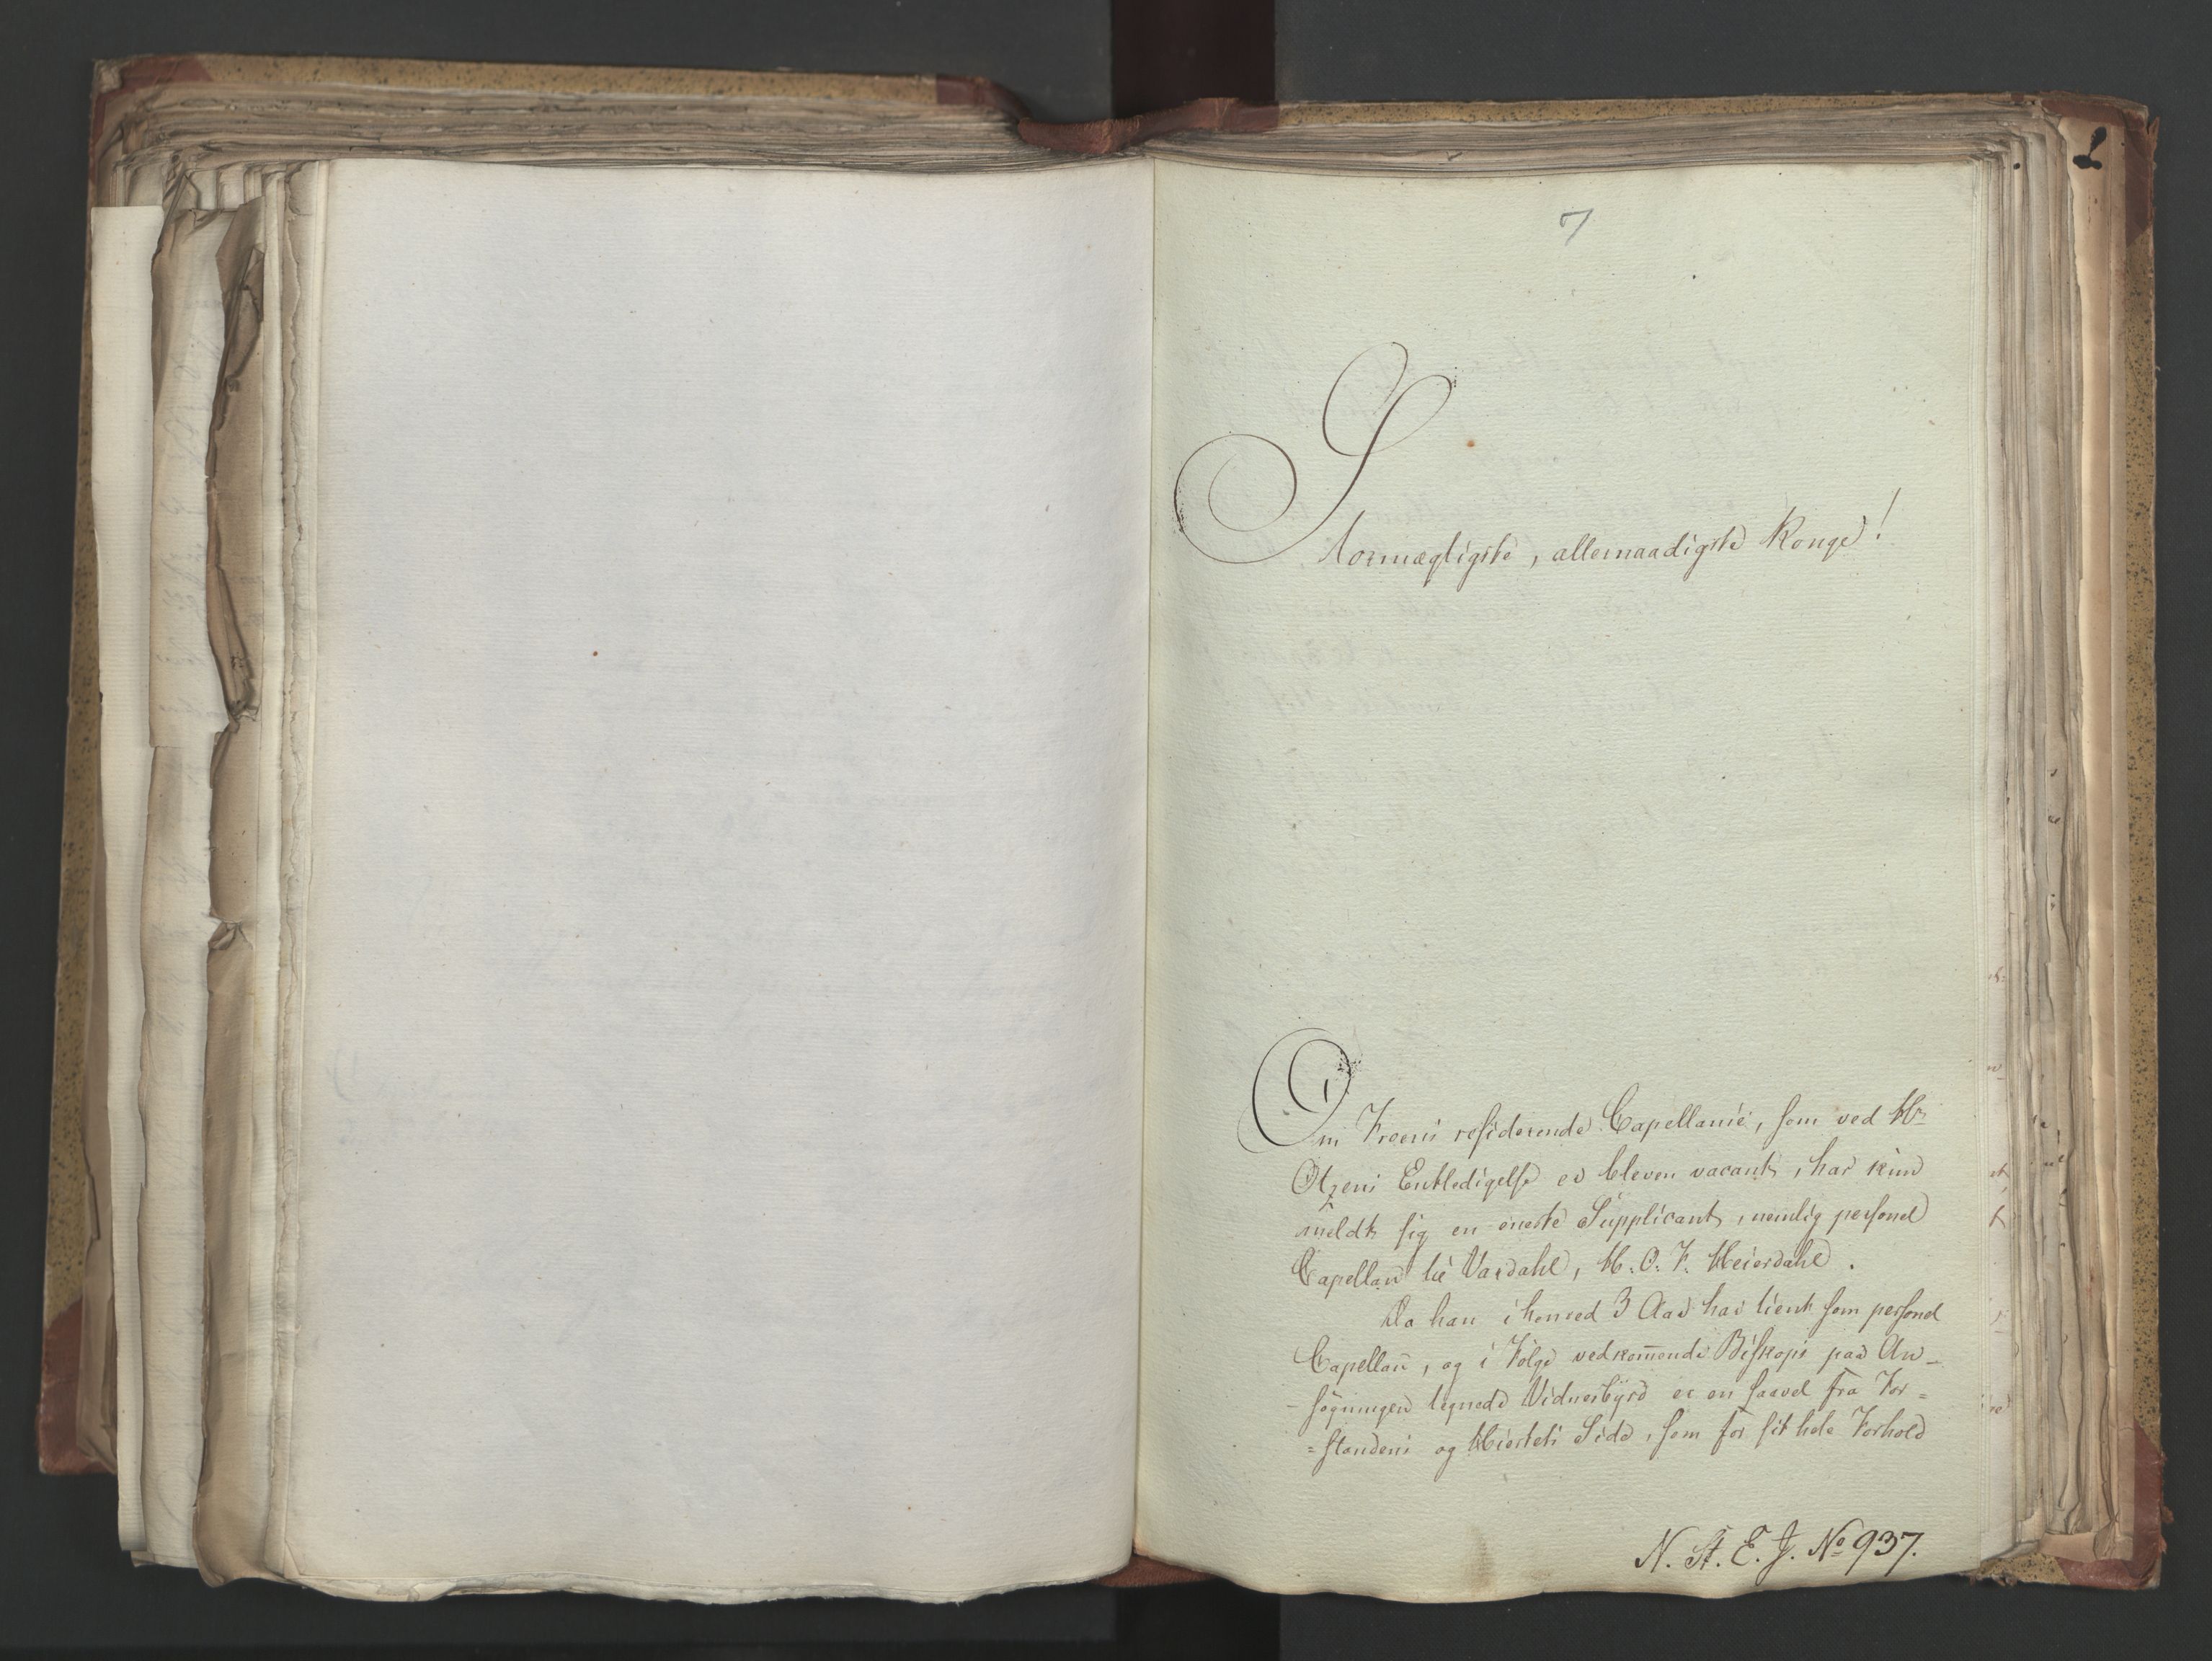 7
Stormægtigste, allernaadigste Konge!
Om Froens residerende Capellanie, som ved Hr
Otzens Entledigelse er bleven vacant, har kun
meldt sig en eneste Supplicant, nemlig personel
Capellan til Vardahl, H. O. F. Heierdahl.
Da han i henved 3 Aar har tient som personel
Capellan̄, og i Følge vedkom̄ende Biskops paa An-
-søgningen tegnede Vidnesbyrd er en saavel fra For=
=standens og Hiertets Side, som for sit hele Forhold
N. St. E. J. No 937.